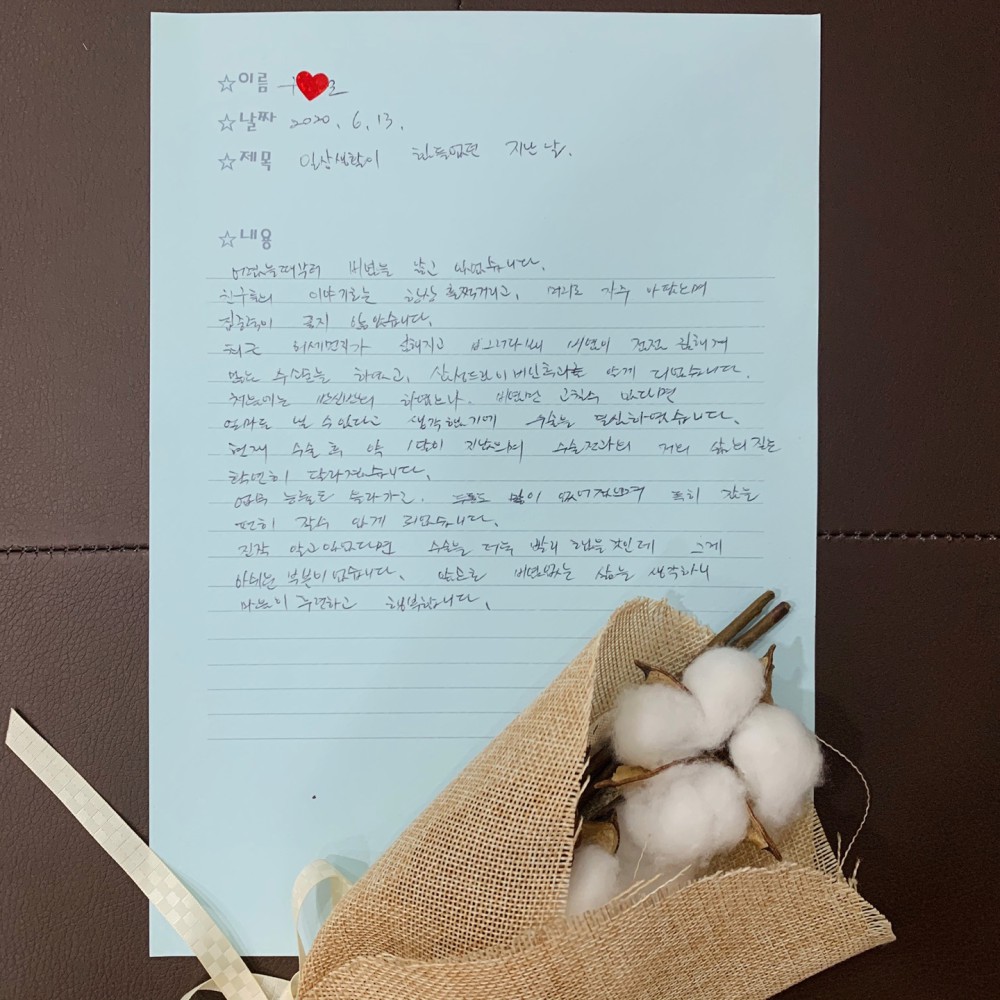 ☆이름
☆날짜 2020. 6. 13.
☆제목 일상생활이 힘들었던 지난 날.
☆내용
어렸을때부터 비염을 앓고 있었습니다.
친구들의 이야기로는 항상 훌쩍거리고, 머리도 자주 아팠으며
집중력이 좋지 않았습니다.
최근 미세먼지가 심해지고 그러다보니 비염이 점점 심해져
수소문을 하였고, 삼성드림이비인후과를 알게 되었습니다.
처음에는 반신반의 하였으나, 비염만 고칠수 있다면
얼마든 낼 수있다고 생각했기에 수술을 결심하였습니다.
현재 수술 후 약 1달이 지났으며 수술전과의 저의 삶의 질은
확연히 달라졌습니다.
업무 능률도 올라가고, 두통도 많이 없어졌으며 특히 잠을
편히 잘수 있게 되었습니다.
진작 알고있었다면 수술을 더욱 빨리 했을 것인데 그게
아쉬운 부분이었습니다. 앞으로 비염없는 삶을 생각하니
마음이 후련하고 행복합니다.